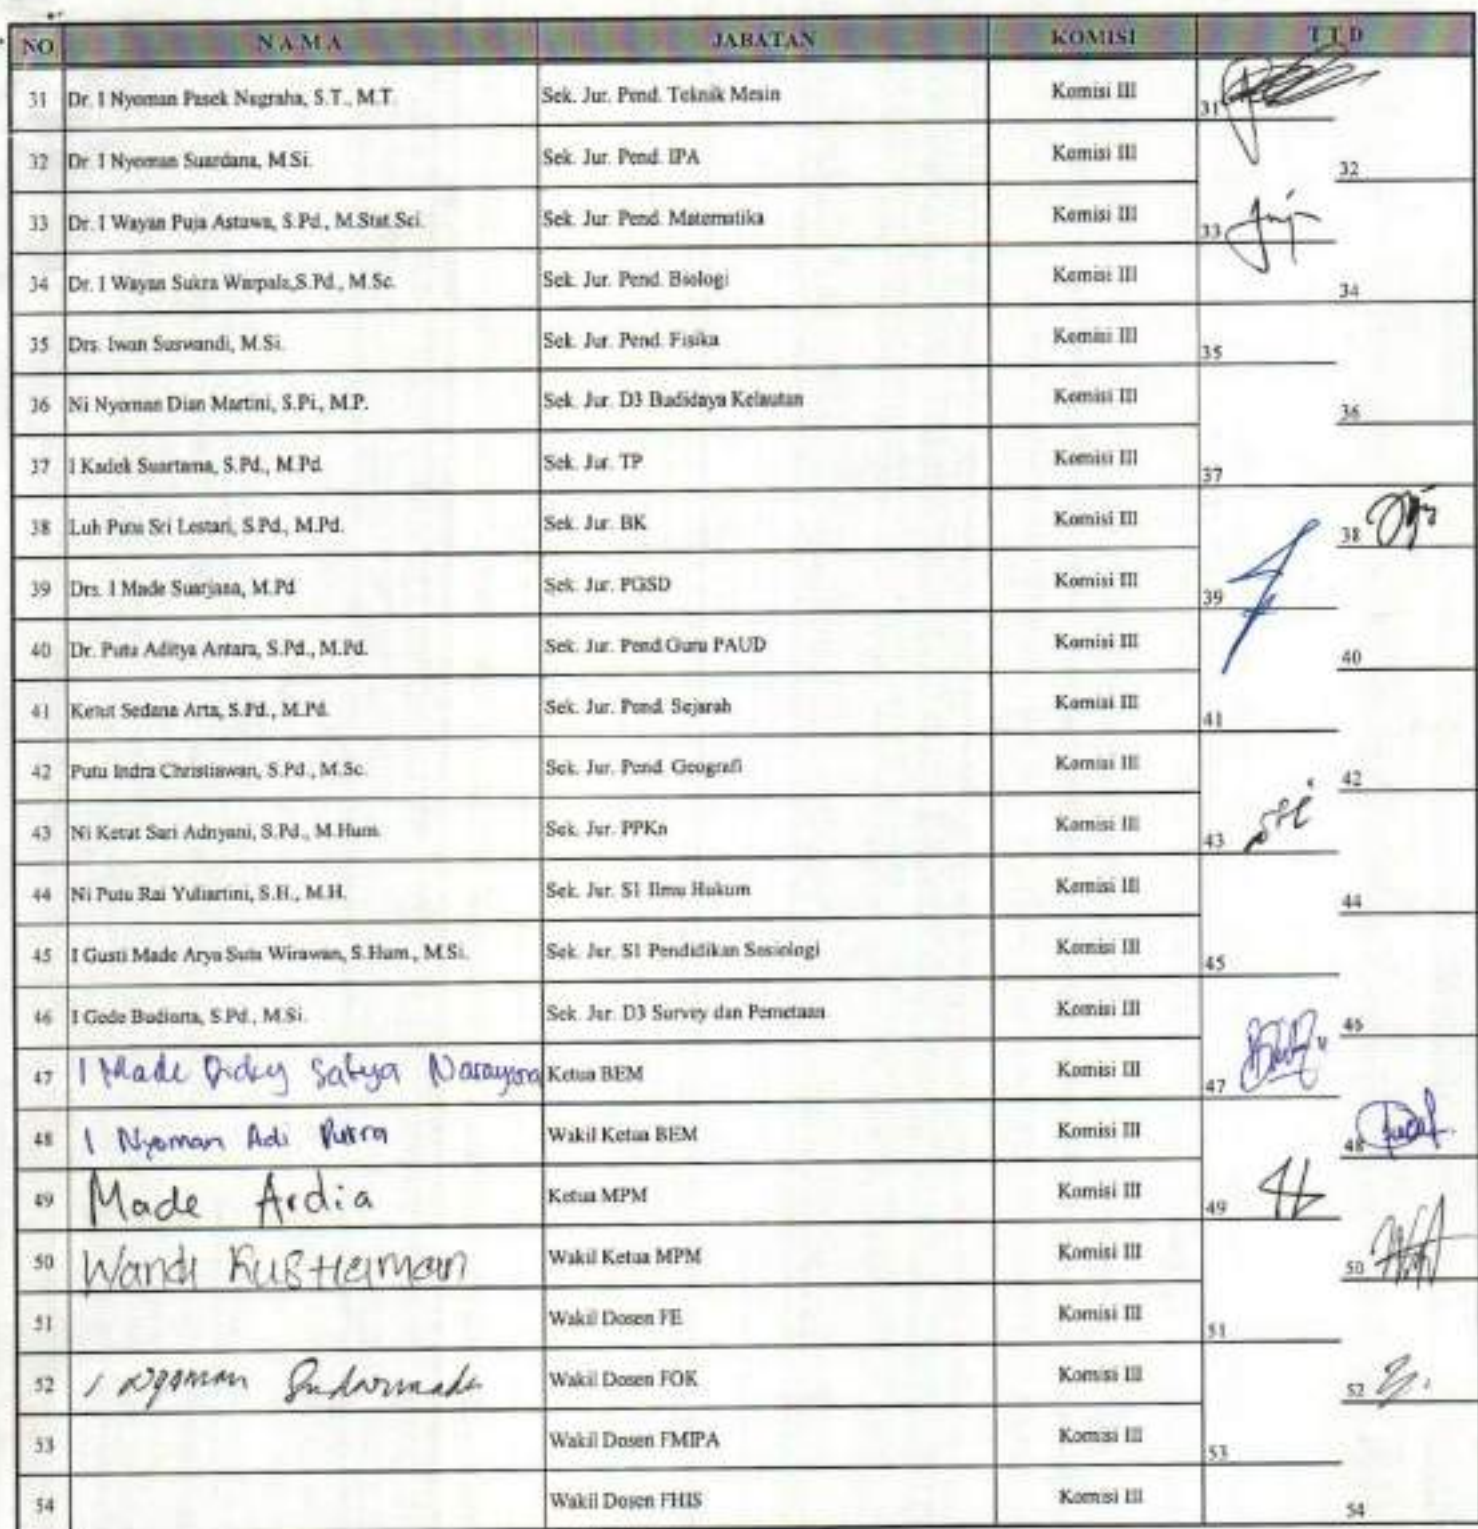 NO NAMA JABATAN KOMISI TTD
31 Dr. I Nyoman Pasek Nugraha, S.T., M.T. Sek. Jur. Pend. Teknik Mesin Komisi III 31
32 Dr. I Nyoman Suardana, M.Si. Sek. Jur. Pend. IPA Komisi III 32
33 Dr. I Wayan Puja Astawa, S.Pd., M.Stat.Sci. Sek. Jur. Pend. Matematika Komisi III 33
34 Dr. I Wayan Sukra Warpala,S.Pd., M.Sc. Sek. Jur. Pend. Biologi Komisi III 34
35 Drs. Iwan Suswandi, M.Si. Sek. Jur. Pend. Fisika Komisi III 35
36 Ni Nyoman Dian Martini, S.Pi., M.P. Sek. Jur. D3 Budidaya Kelautan Komisi III 36
37 I Kadek Suartama, S.Pd., M.Pd. Sek. Jur. TP Komisi III 37
38 Luh Putu Sri Lestari, S.Pd., M.Pd. Sek. Jur. BK Komisi III 38
39 Drs. I Made Suarjana, M.Pd Sek. Jur. PGSD Komisi III 39
40 Dr. Putu Aditya Antara, S.Pd., M.Pd. Sek. Jur. Pend.Guru PAUD Komisi III 40
41 Ketut Sedana Arta, S.Pd., M.Pd. Sek. Jur. Pend. Sejarah Komisi III 41
42 Putu Indra Christiawan, S.Pd., M.Sc. Sek. Jur. Pend. Geografi Komisi III 42
43 Ni Ketut Sari Adnyani, S.Pd., M.Hum. Sek. Jur. PPKn Komisi III 43
44 Ni Putu Rai Yuliartini, S.H., M.H. Sek. Jur. S1 Ilmu Hukum Komisi III 44
45 I Gusti Made Arya Suta Wirawan, S.Hum., M.Si. Sek. Jur. S1 Pendidikan Sosiologi Komisi III 45
46 I Gede Budiarta, S.Pd., M.Si. Sek. Jur. D3 Survey dan Pemetaan Komisi III 46
47 I Made Dicky Satya Narayana Ketua BEM Komisi III 47
48 I Nyoman Adi Putra Wakil Ketua BEM Komisi III 48
49 Made Ardia Ketua MPM Komisi III 49
50 Wandi Wakil Ketua MPM Komisi III 50
51 Wakil Dosen FE Komisi III 51
52 I Nyoman Sudarmada Wakil Dosen FOK Komisi III 52
53 Wakil Dosen FMIPA Komisi III 53
54 Wakil Dosen FHIS Komisi III 54